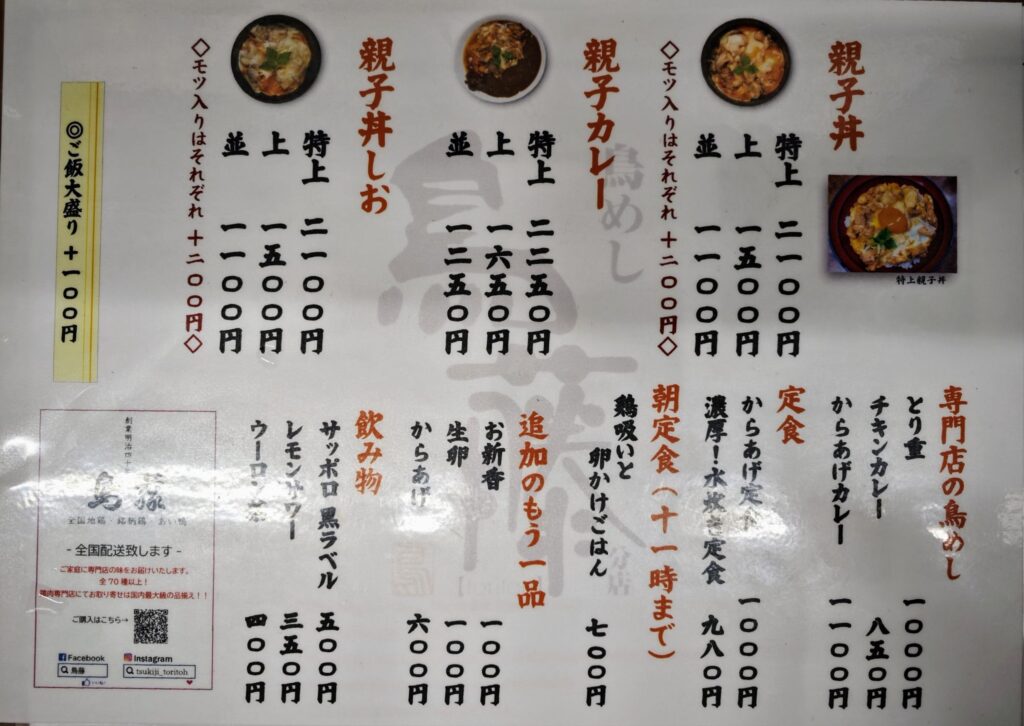 親子丼
特上 二一〇〇円
上 一五〇〇円
並 一一〇〇円
◇モツ入りはそれぞれ +二〇〇円◇
特上親子丼
親子カレー
特上 二二五〇円
上 一六五〇円
並 一二五〇円
親子丼しお
特上 二一〇〇円
上 一五〇〇円
並 一一〇〇円
◇モツ入りはそれぞれ +二〇〇円◇
◎ご飯大盛り +一〇〇円
専門店の鳥めし
とり重 一〇〇〇円
チキンカレー 八五〇円
からあげカレー 一一〇〇円
定食
からあげ定食 一〇〇〇円
濃厚!水炊き定食 九八〇円
朝定食(十一時まで)
鶏吸いと
卵かけごはん 七〇〇円
追加のもう一品
お新香 一〇〇円
生卵 一〇〇円
からあげ 六〇〇円
飲み物
サッポロ 黒ラベル 五〇〇円
レモンサワー 三五〇円
ウーロン茶 四〇〇円
鳥めし
鳥藤
分店
創業明治四十
鳥藤
全国地鶏・銘柄鶏・あい鴨
- 全国配送致します -
ご家庭に専門店の味をお届けいたします。
全70種以上!
鶏肉専門店にてお取り寄せは国内最大級の品揃え!!
ご購入はこちら→
Facebook
鳥藤
いいね!
Instagram
tsukiji_toritoh